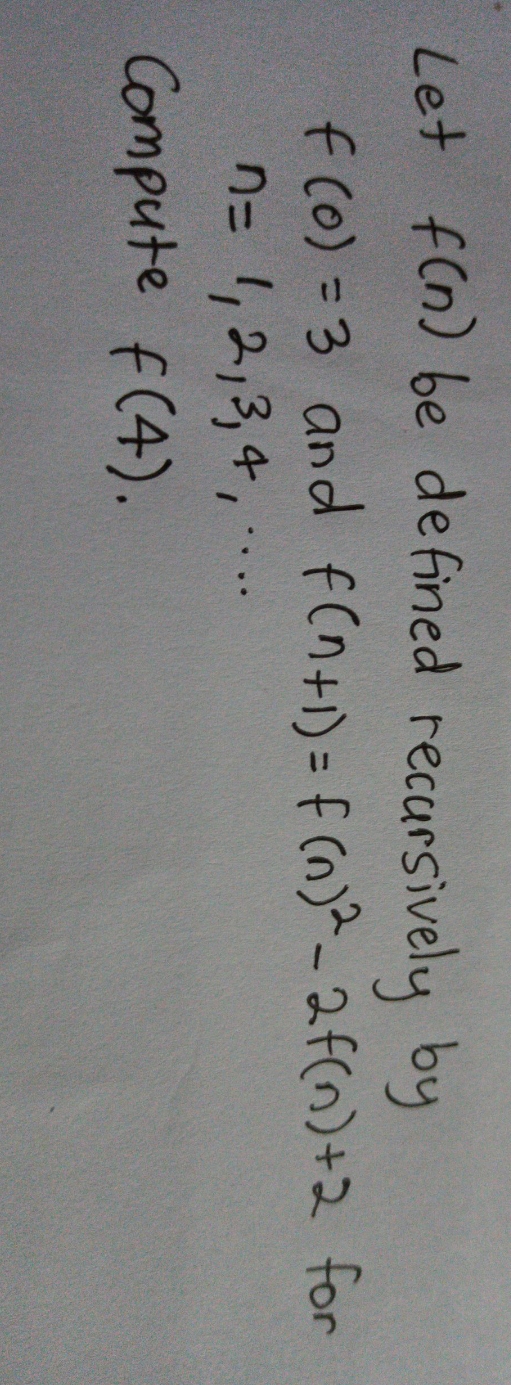 Let f(n) be defined recursively by
f(0) = 3 and f(n+1) = f(n)² - 2f(n) + 2 for
n = 1, 2, 3, 4, ....
Compute f(4).